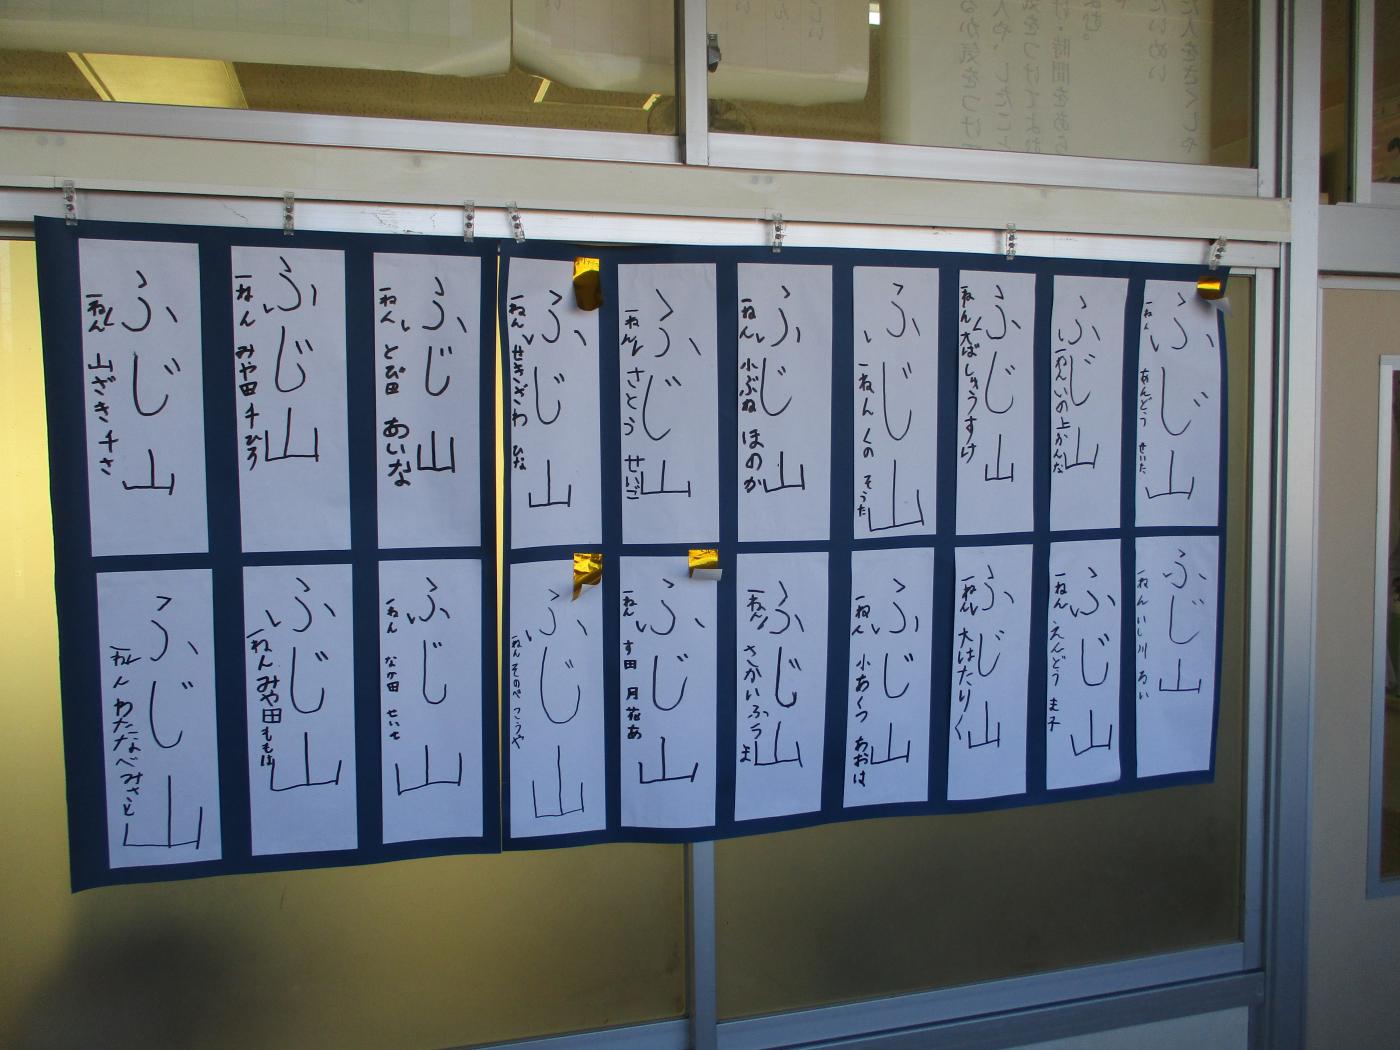 ふじ山
一ねん あんどう せいた
ふじ山
一ねん いの上かんな
ふじ山
一ねん 大ばしゅうすけ
ふじ山
一ねん くの そうた
ふじ山
一ねん 小ぶね ほのか
ふじ山
一ねん さとう せいご
ふじ山
一ねん せきざわ ひな
ふじ山
一ねん とび田 あいな
ふじ山
一ねん みや田 千ひろ
ふじ山
一ねん 山ざき 千さ
ふじ山
一ねん いし川 あい
ふじ山
一ねん えんどう
ふじ山
一ねん 大はたりく
ふじ山
一ねん 小あくつ あおは
ふじ山
一ねん さかいふうま
ふじ山
一ねん す田 月
ふじ山
一ねん そのべ こうや
ふじ山
一ねん なか田
ふじ山
一ねん みや田ももは
ふじ山
一ねん わたなべみさと